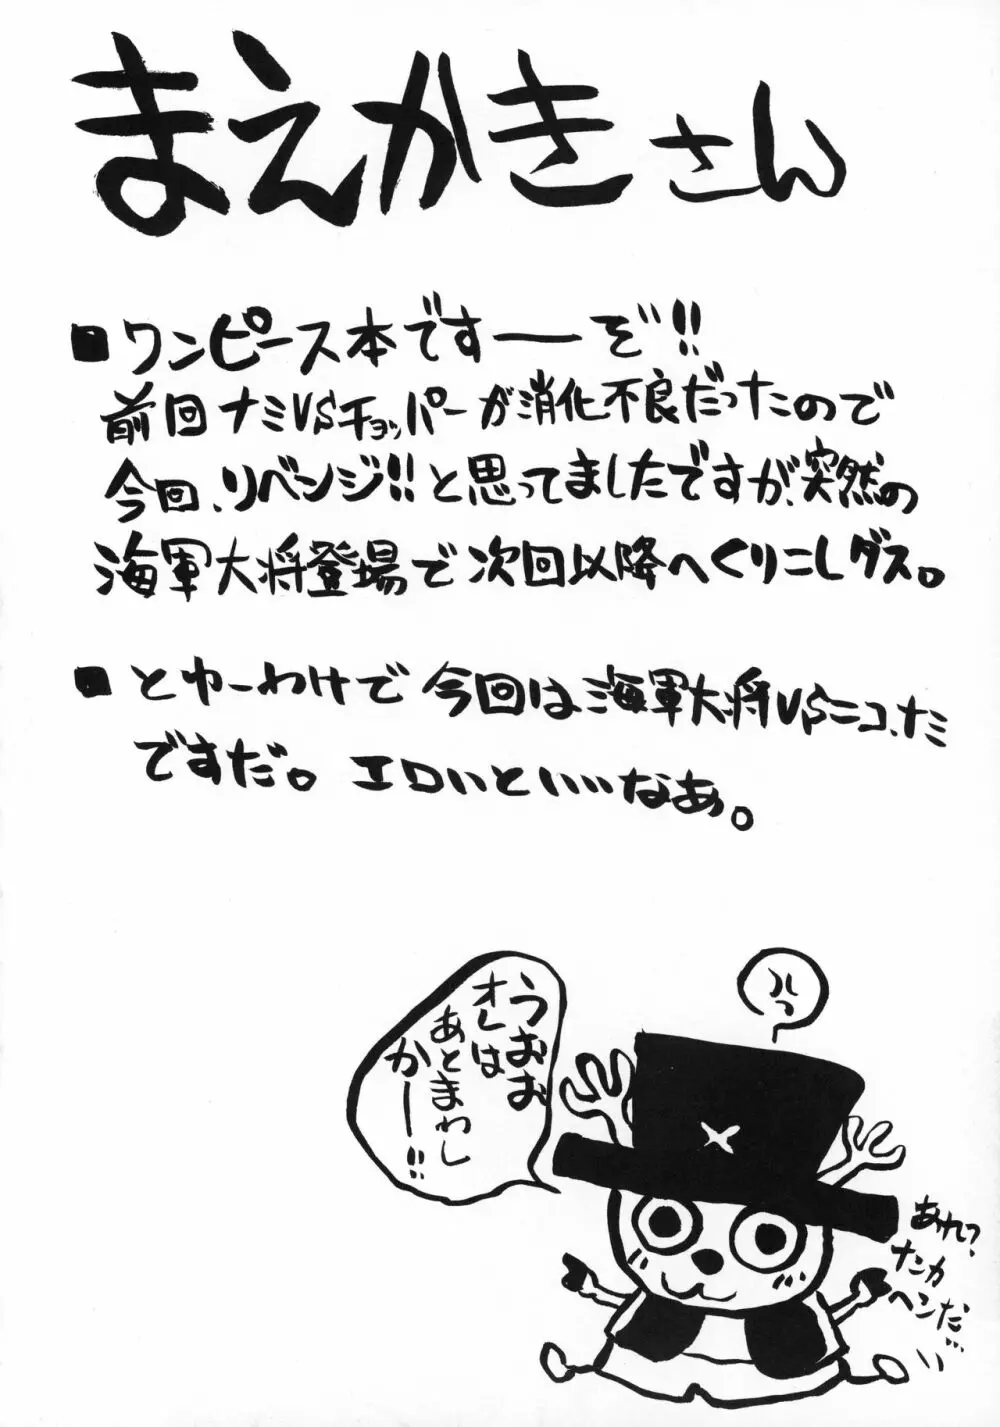 まえかきさん
■ワンピース本ですーぞ!!
前回ナミVSチョッパーが消化不良だったので
今回、リベンジ!!と思ってましたですが、突然の
海軍大将登場で次回以降へくりこしダス。
■とゆーわけで今回は海軍大将VSニコ、ナミ
ですだ。エロいといいなあ。
ハっ
うおお
オレは
あとまわし
かー!!
あれ?
ナンカ
ヘンだ…
い